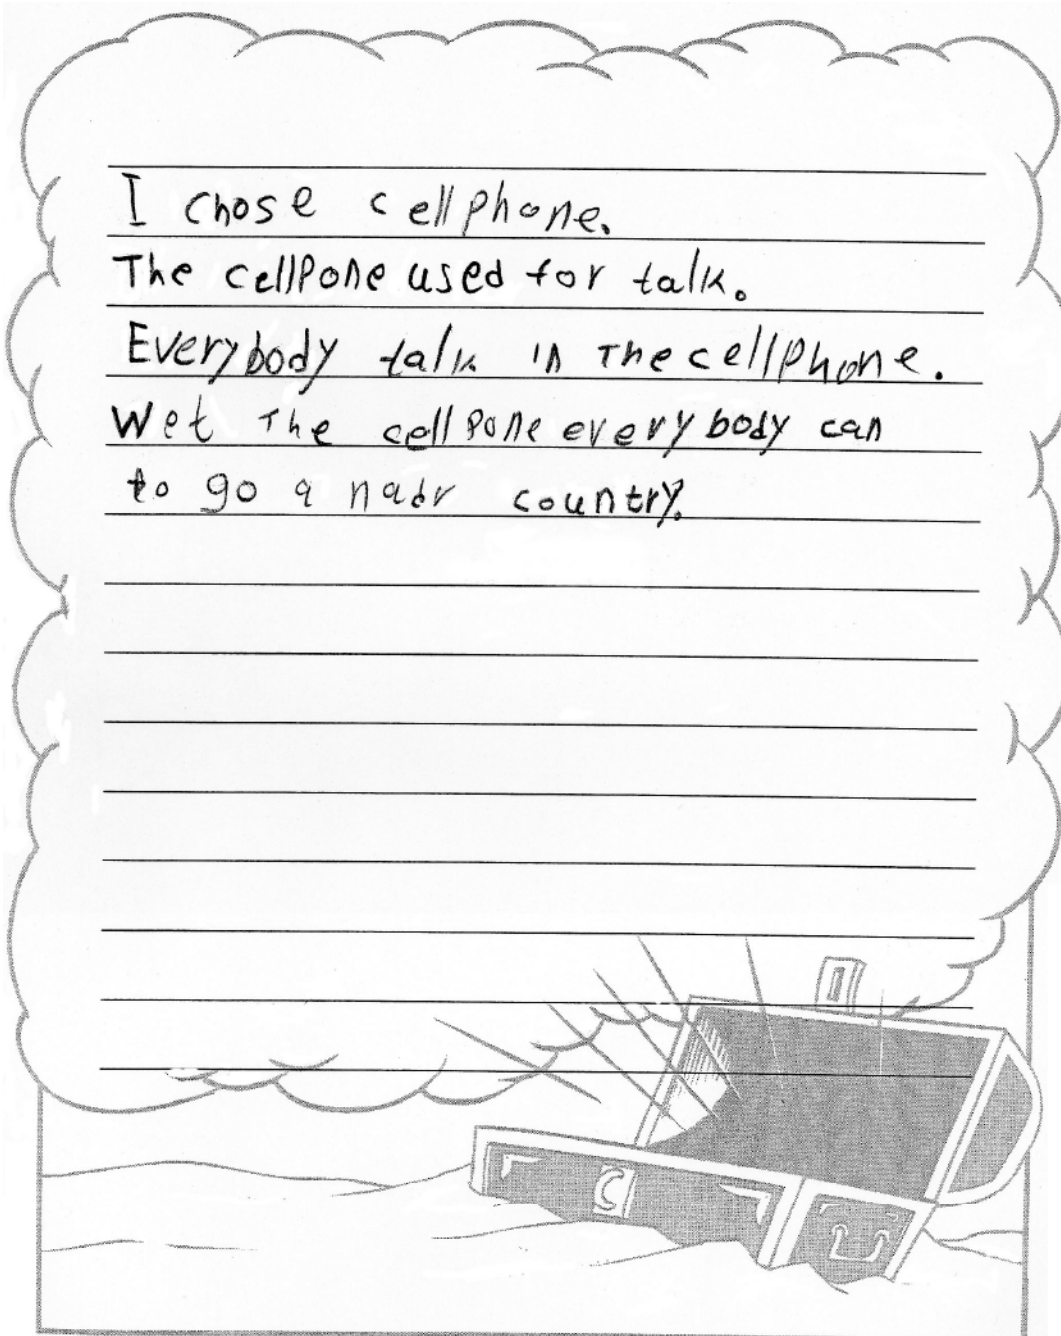 I chose cellphone.
The cellpone used for talk.
Everybody talk in The cellphone.
Wet The cellpone everybody can
to go a nadr country.